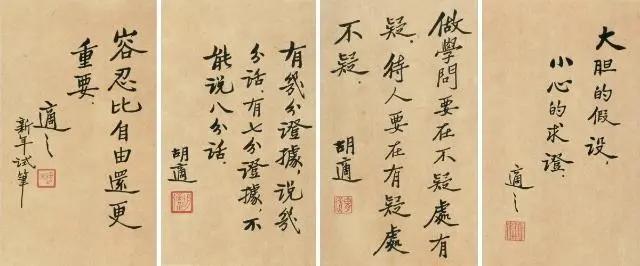 容忍比自由還更
重要.
適之
新年试筆
有幾分證據,説幾
分话.有七分證據,不
能说八分话.
胡適
做學問要在不疑處有
疑.待人要在有疑處
不疑.
胡適
大胆的假设,
小心的求證.
適之